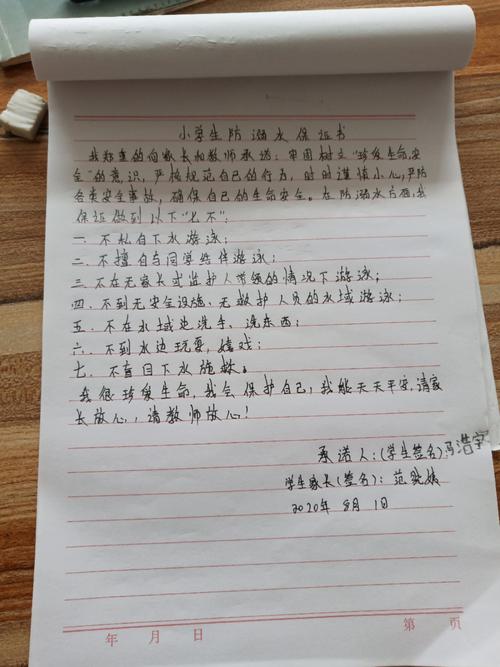 小学生防溺水保证书
我郑重的向家长和教师承诺：牢固树立“珍爱生命,安
全”的意识，严格规范自己的行为，时时谨慎小心,严防
各类安全事故，确保自己的生命安全。在防溺水方面,我
保证做到以下“七不”：
一．不私自下水游泳；
二．不擅自与同学结伴游泳；
三．不在无家长或监护人带领的情况下游泳；
四．不到无安全设施、无救护人员的水域游泳；
五．不在水域边洗手、洗东西；
六．不到水边玩耍，嬉戏；
七．不盲目下水施救。
我很珍爱生命，我会保护自己，我能天天平安,请家
长放心，请教师放心！
承诺人：(学生签名)冯浩宇
学生家长(签名)：范
2020年8月1日
年 月 日 第 页